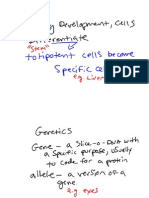 Development, Cells
Differentiate
"Stem"
totipotent cells become
Specific
e.g. Liver
Genetics
Gene – a Slice-o-DNA with
a specific purpose, usually
to code for a protein
allele – a version of a
gene.
e.g. eyes